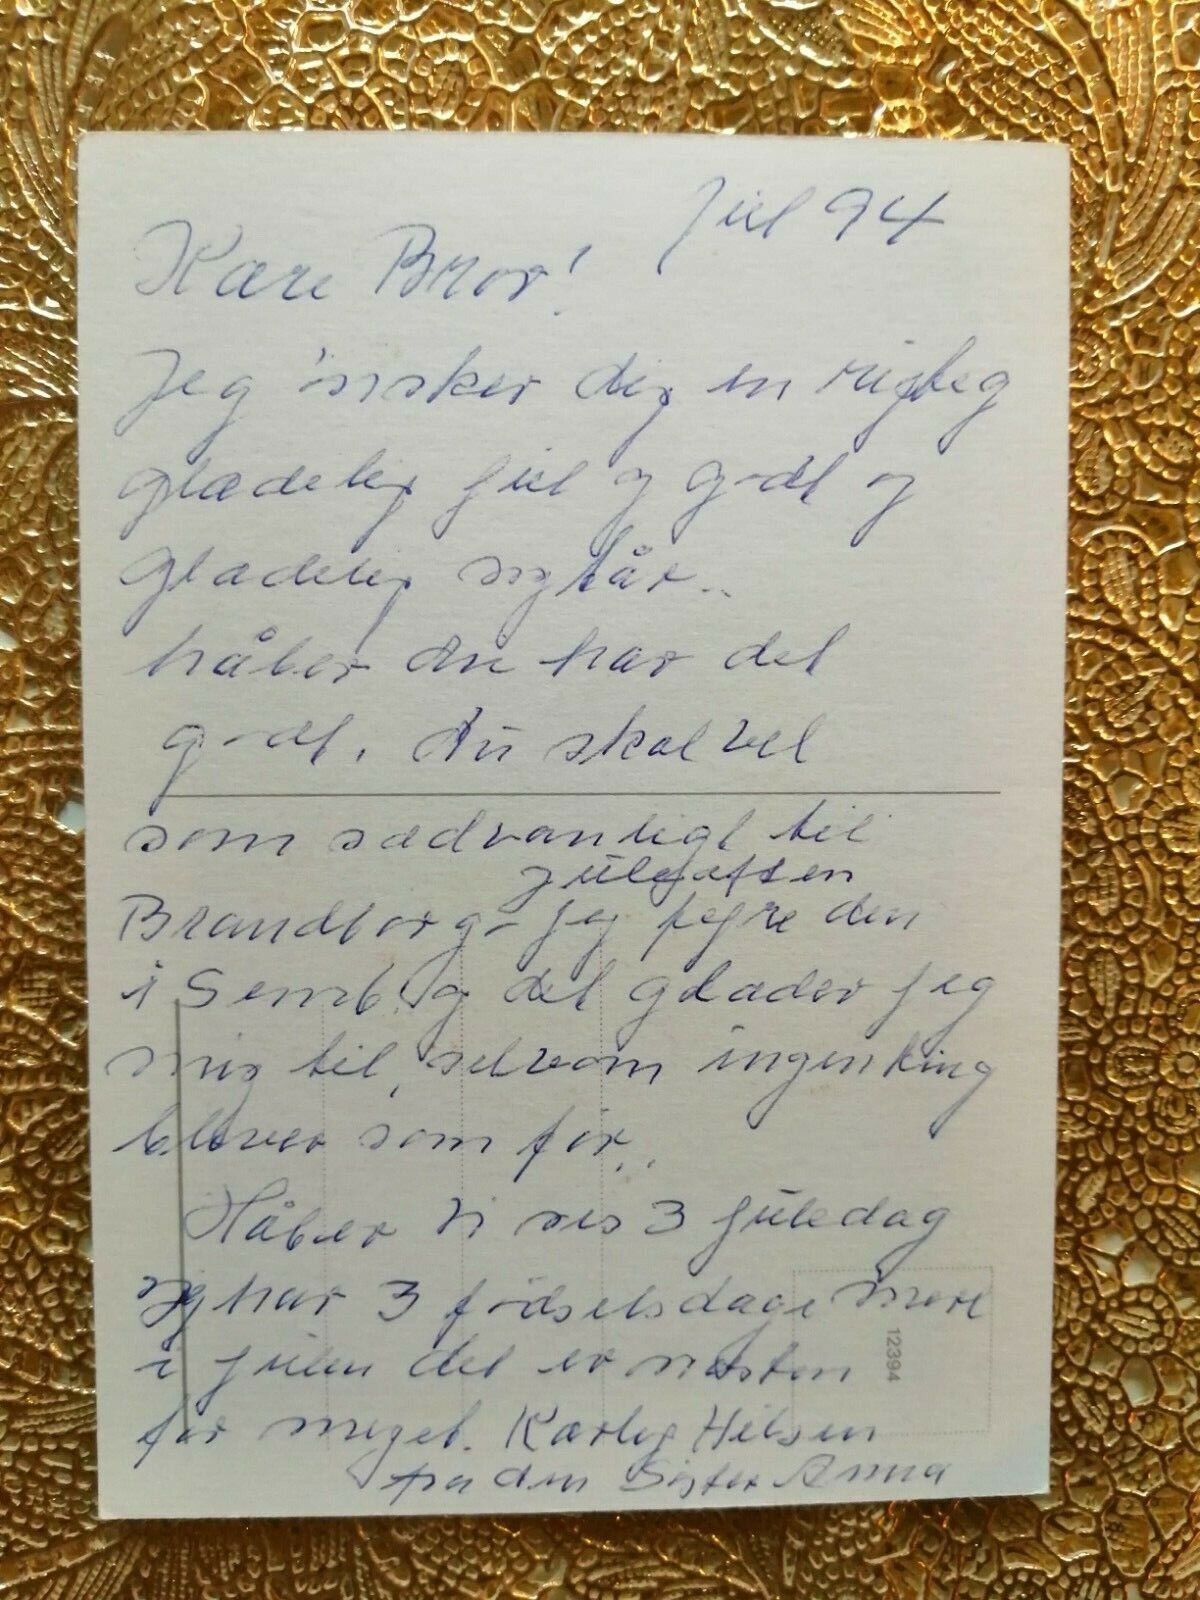 Jul 94
Kære Bror!
Jeg ønsker dig en rigtig
glædelig jul og godt og
glædelig nytår..
håber du har det
godt. du skal vel
som sædvanligt til
juleaften
Brandborg - jeg fejre den
i Semb. og det glæder jeg
mig til, selvom ingenting
bliver som før..
Håber vi ses 3 juledag
jeg har 3 fødselsdage mere
i julen det er næsten
for meget. Kærlig Hilsen
fra din Søster Anna
12394